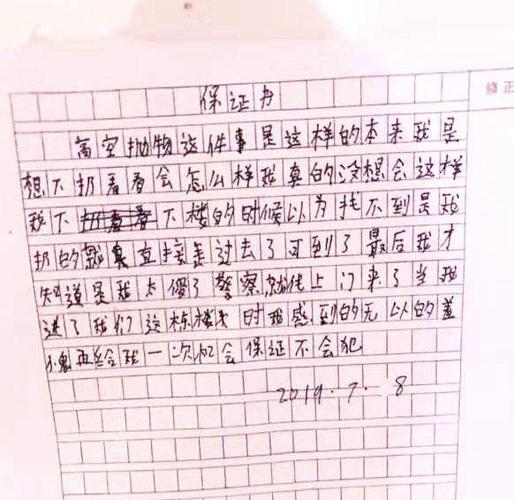 修正
保证书
高空抛物这件事是这样的本来我是
想下扔看看会怎么样我真的没想会这样
我下扔看看下楼的时候以为找不到是我
扔的就直接走过去了可到了最后我才
知道是我太傻了警察就找上门来了当我
进了我们这栋楼时我感到的无以的羞
愧再给我一次机会保证不会犯
2019.7.8